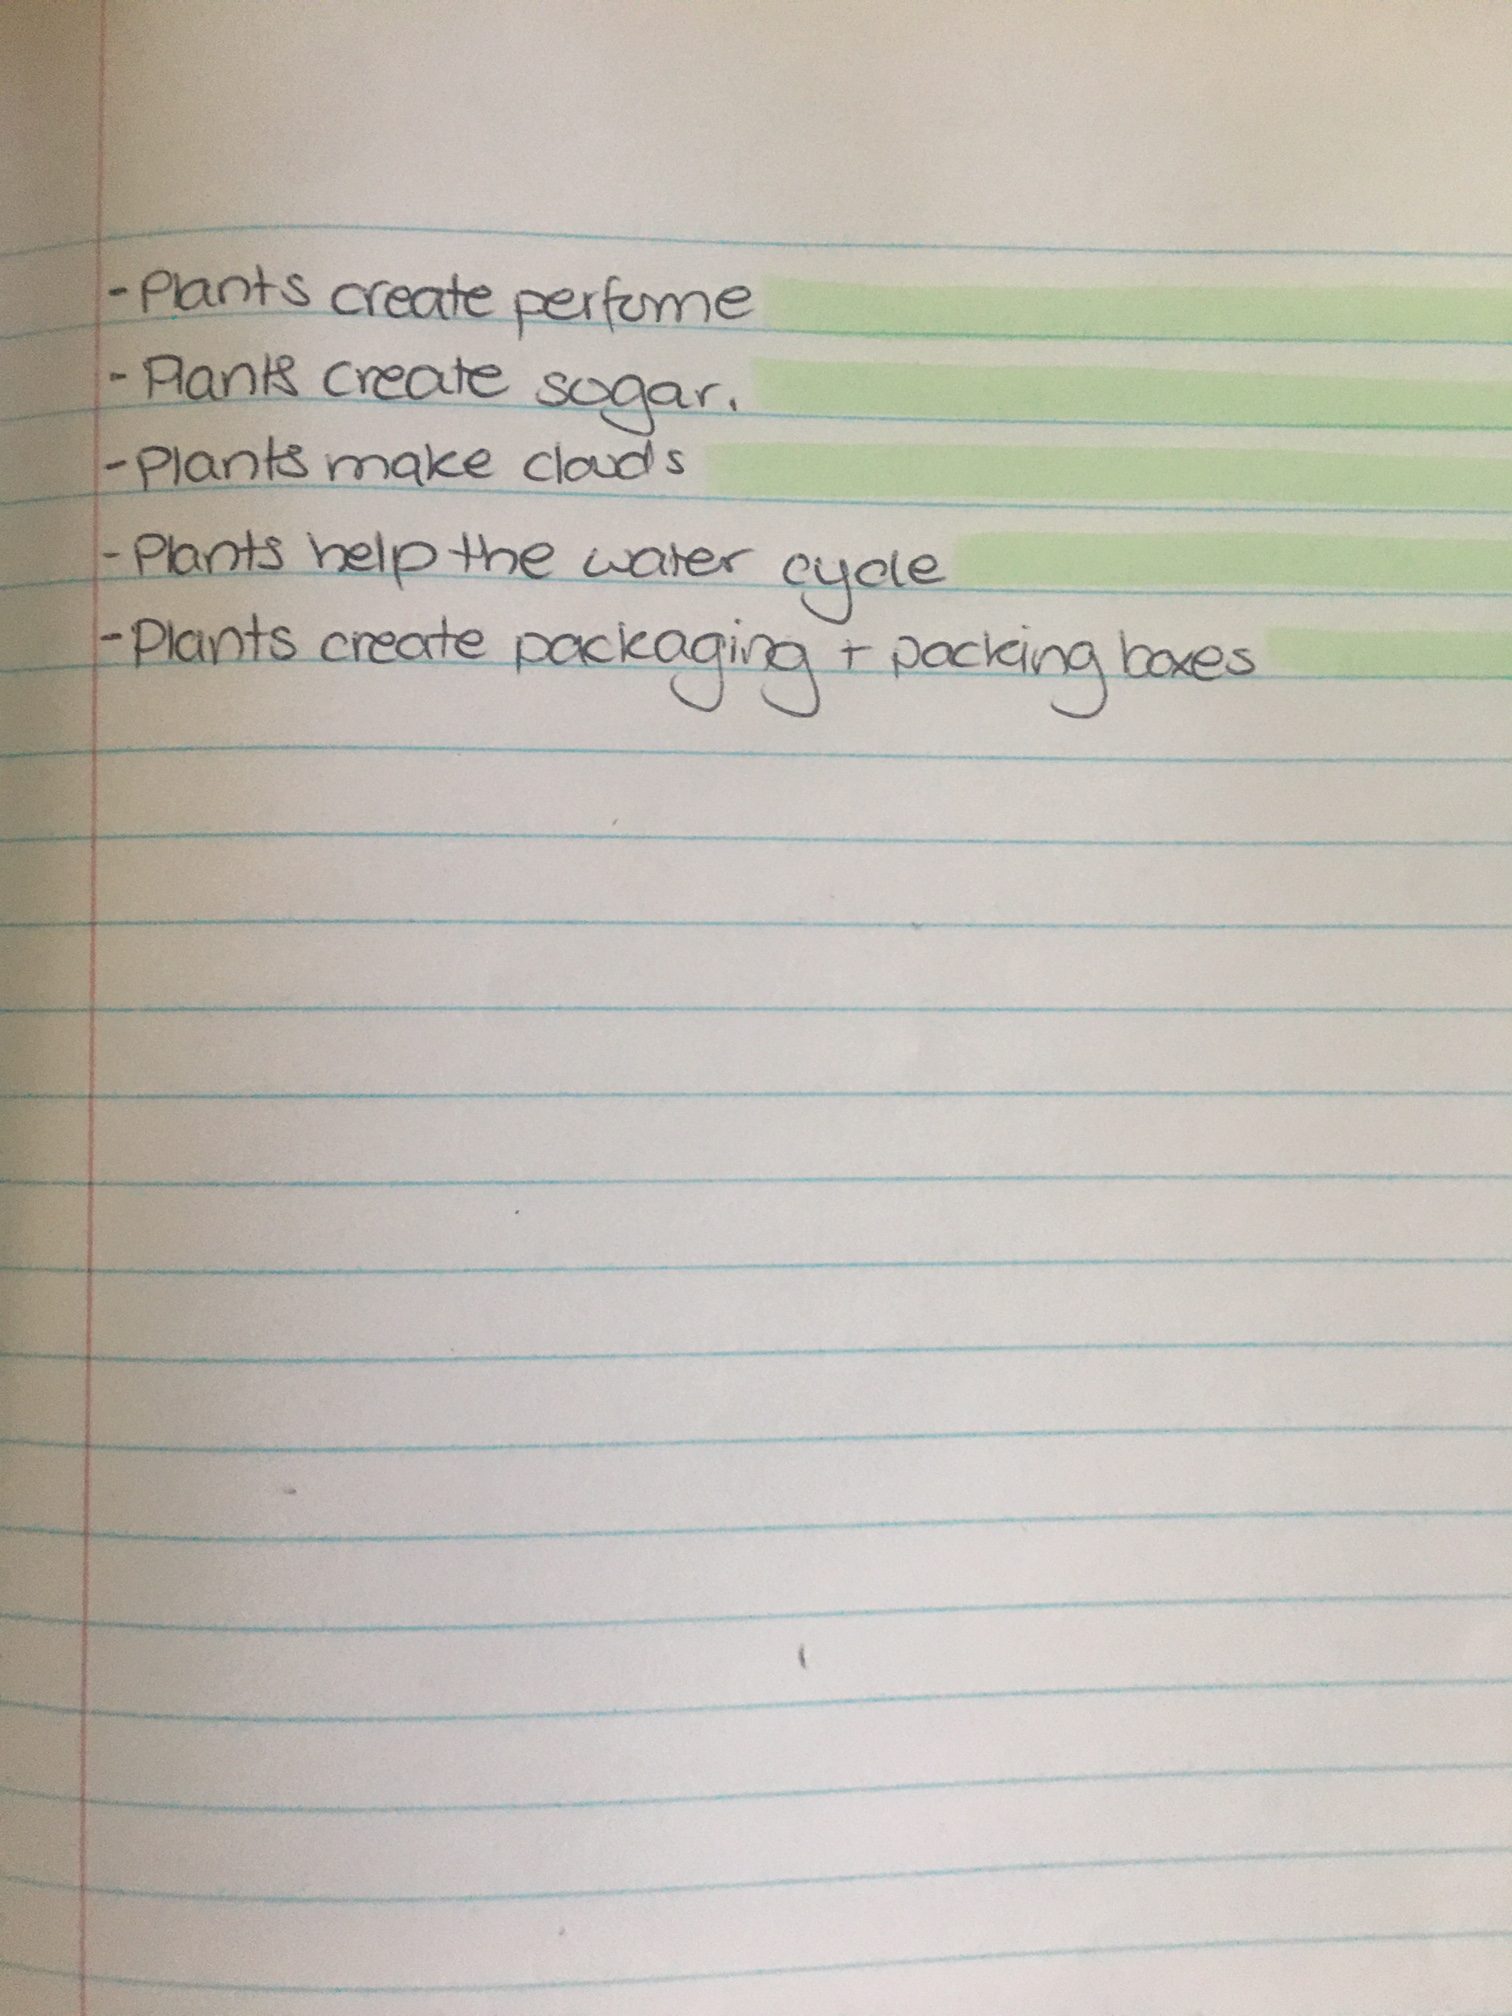 -Plants create perfume
- Plants create sugar.
-Plants make clouds
-Plants help the water cycle
-Plants create packaging + packing boxes